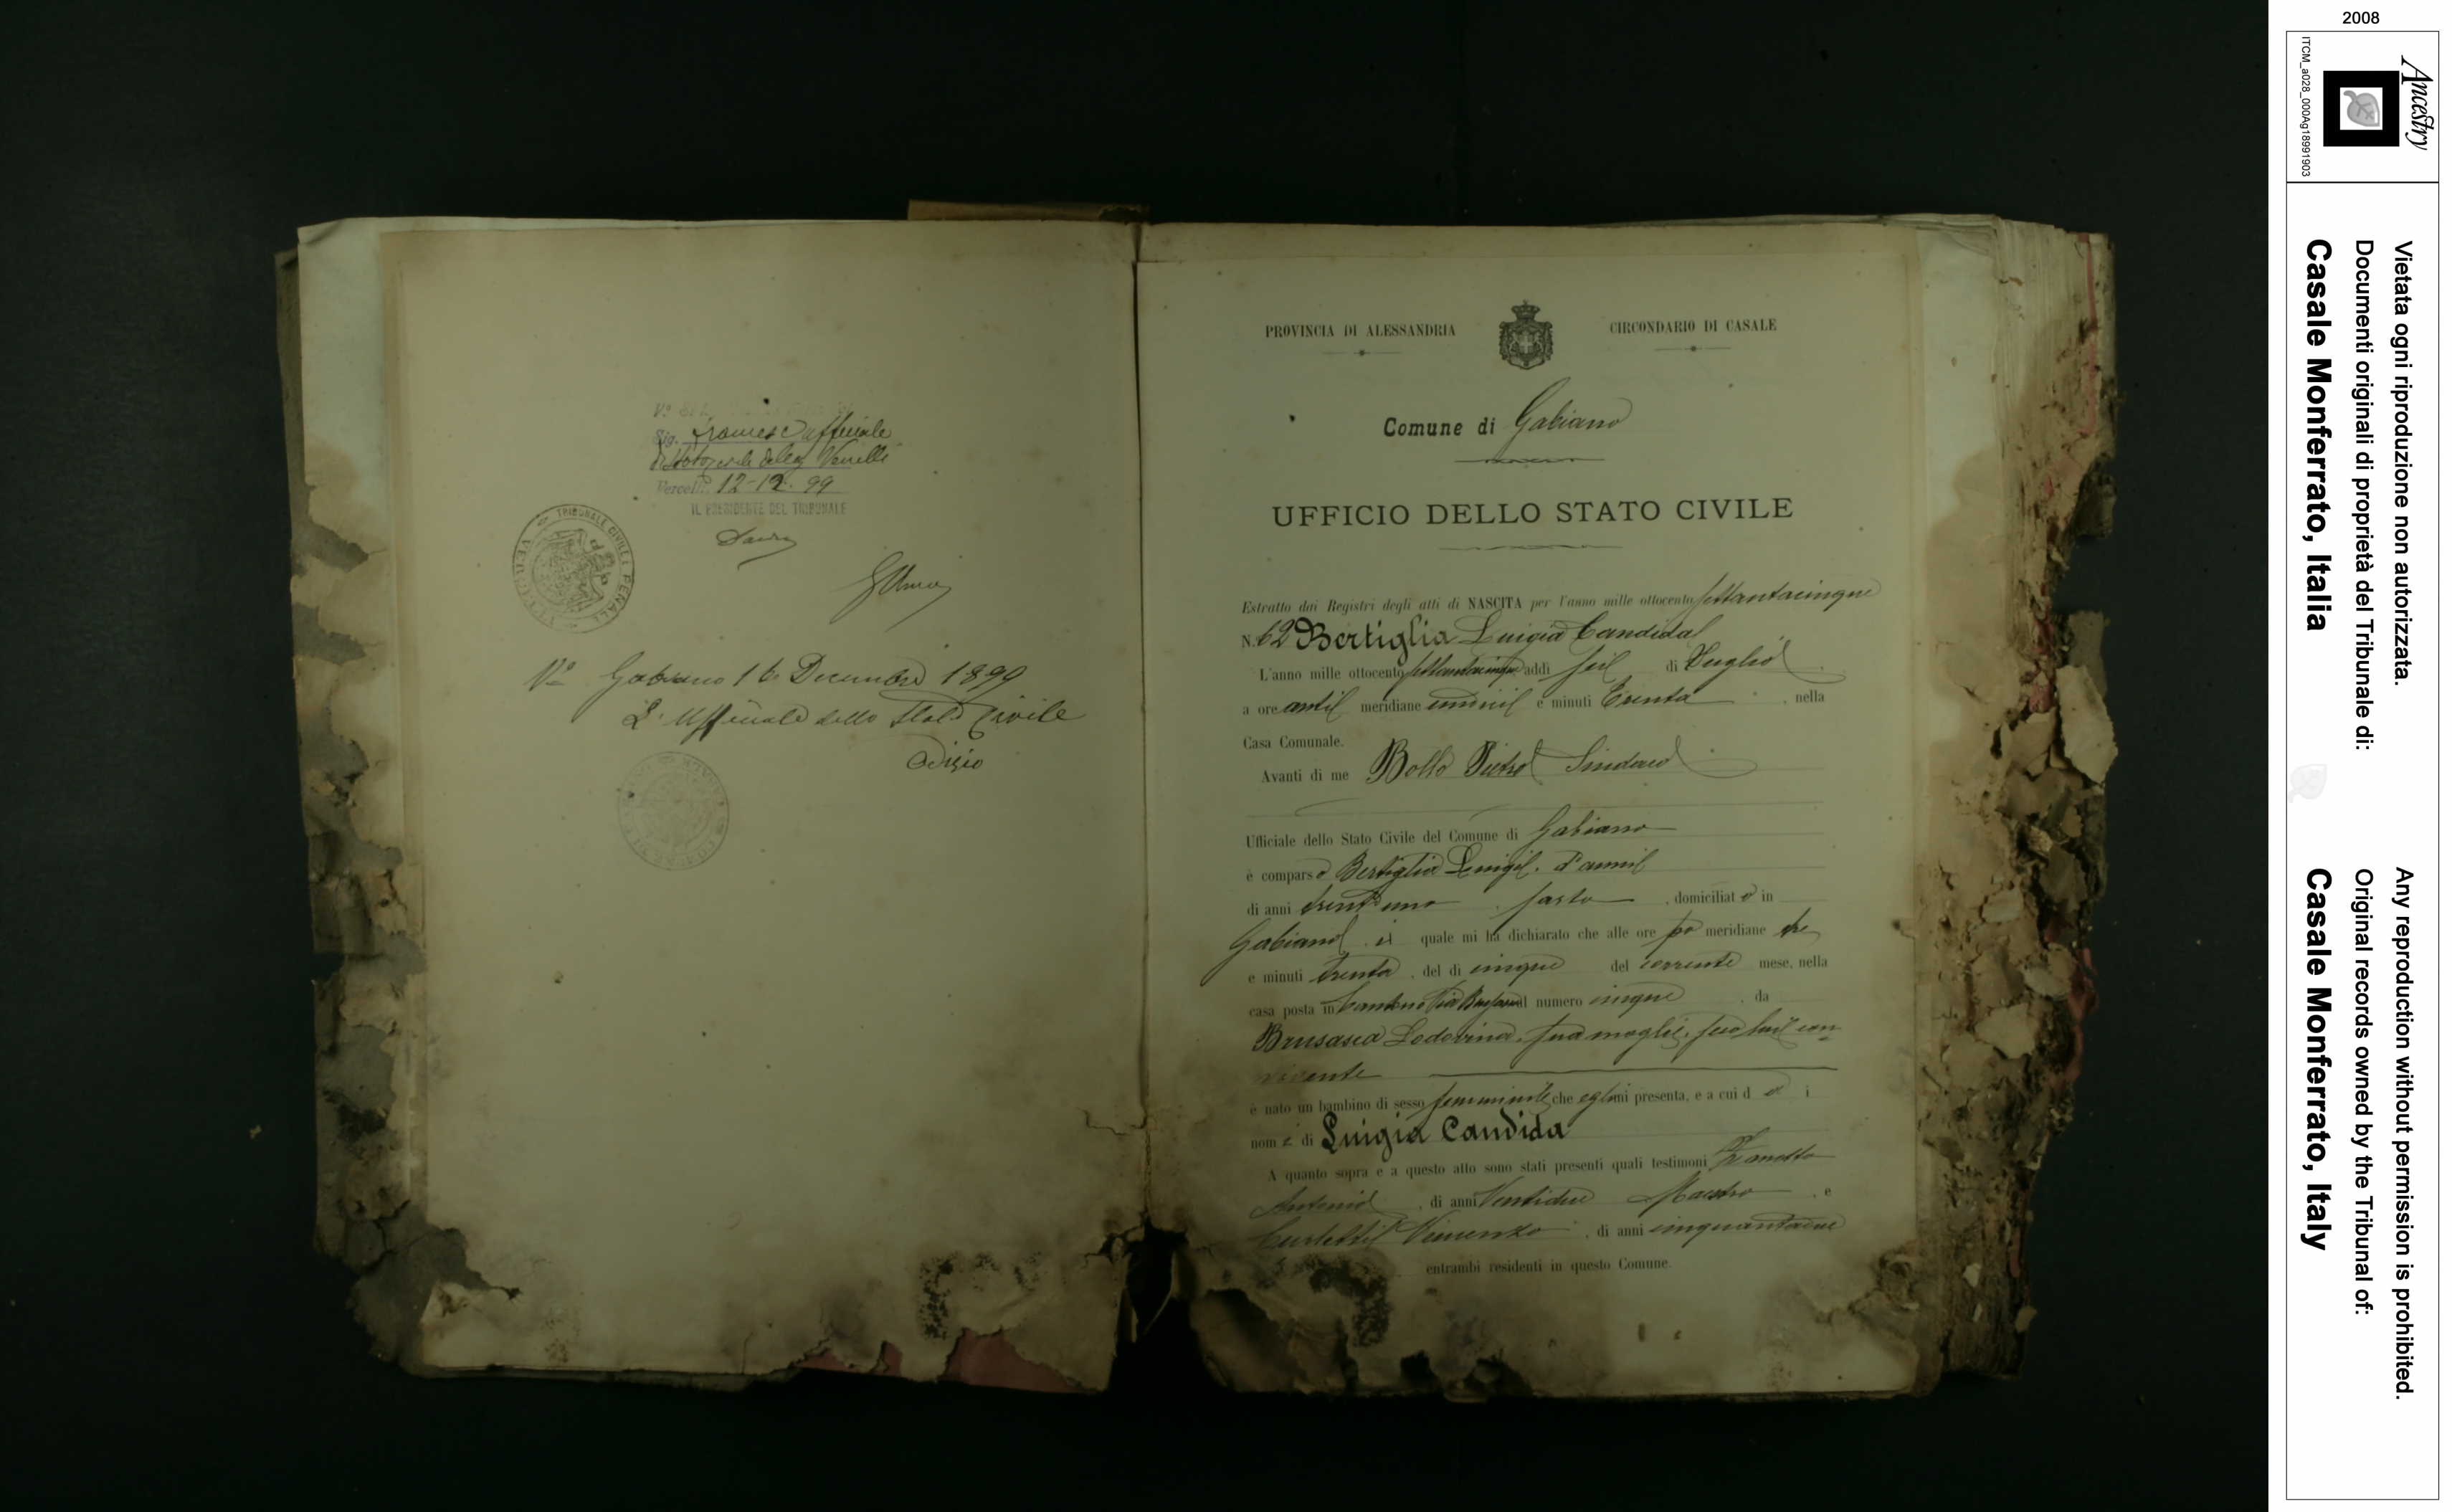 Sig. Francese Ufficiale
di Stato civile della Vercelli
Vercelli 12-12-99
IL PRESIDENTE DEL TRIBUNALE
TRIBUNALE CIVILE E PENALE
Vº Gabiano 16 Decembre 1899
L'Ufficiale dello Stato Civile
Odisio
PROVINCIA DI ALESSANDRIA
CIRCONDARIO DI CASALE
Comune di Gabiano
UFFICIO DELLO STATO CIVILE
Estratto dai Registri degli atti di NASCITA per l'anno mille ottocento settantacinque
N. 62 Bertiglia Luigia Candida
L'anno mille ottocento settantacinque addì sei di Luglio
a ore anti meridiane undici e minuti trenta, nella
Casa Comunale.
Avanti di me Bollo Pietro Sindaco
Ufficiale dello Stato Civile del Comune di Gabiano
è comparso Bertiglia Luigi, d'anni
di anni trentuno, sarto, domiciliato in
Gabiano, il quale mi ha dichiarato che alle ore po meridiane tre
e minuti trenta, del dì cinque del corrente mese, nella
casa posta in Cantone Via al numero cinque, da
Brusasca Lodovina, sua moglie, seco lui con-
vivente
è nato un bambino di sesso femminile che egli mi presenta, e a cui dà i
nomi di Luigia Candida
A quanto sopra e a questo atto sono stati presenti quali testimoni Zanotto
Antonio, di anni Ventidue Maestro, e
Vincenzo, di anni cinquantadue
entrambi residenti in questo Comune.
2008
Ancestry
ITCM_a028_000Ag18991903
Vietata ogni riproduzione non autorizzata.
Documenti originali di proprietà del Tribunale di:
Casale Monferrato, Italia
Any reproduction without permission is prohibited.
Original records owned by the Tribunal of:
Casale Monferrato, Italy